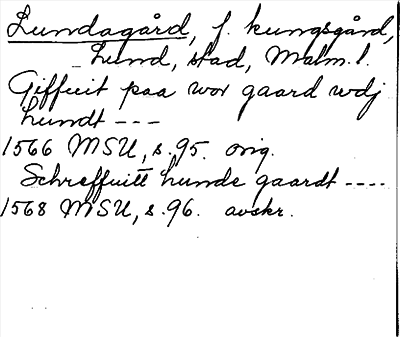 Lundagård, f. kungsgård,
Lund, stad, Malm. l.
Giffuit paa wor gaard wdj
Lundt ---
1566 MSU, s. 95. orig.
Schreffuitt Lunde gaardt ----
1568 MSU, s. 96. avskr.